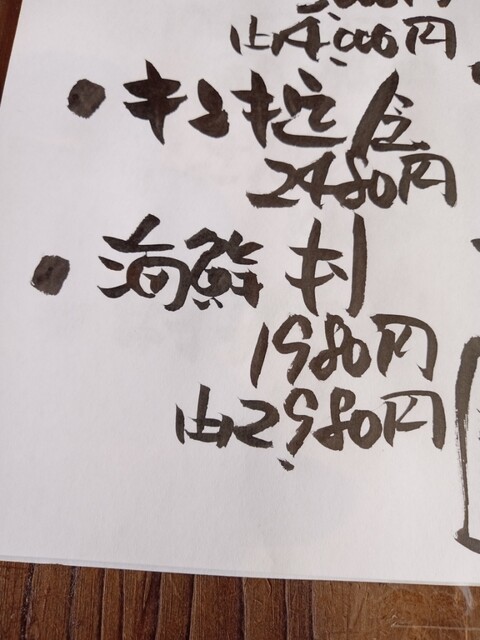 山4,000円
・キンキ定食
2480円
・海鮮丼
1980円
山2,980円